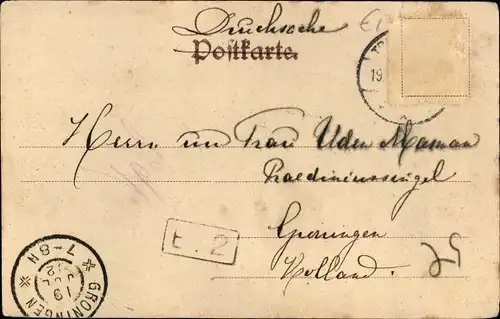 Drucksache
Postkarte.
19
Herrn un Frau Uden Masman
Praediniussingel
Groningen
Holland.
t. 2
GRONINGEN
7-8N
19